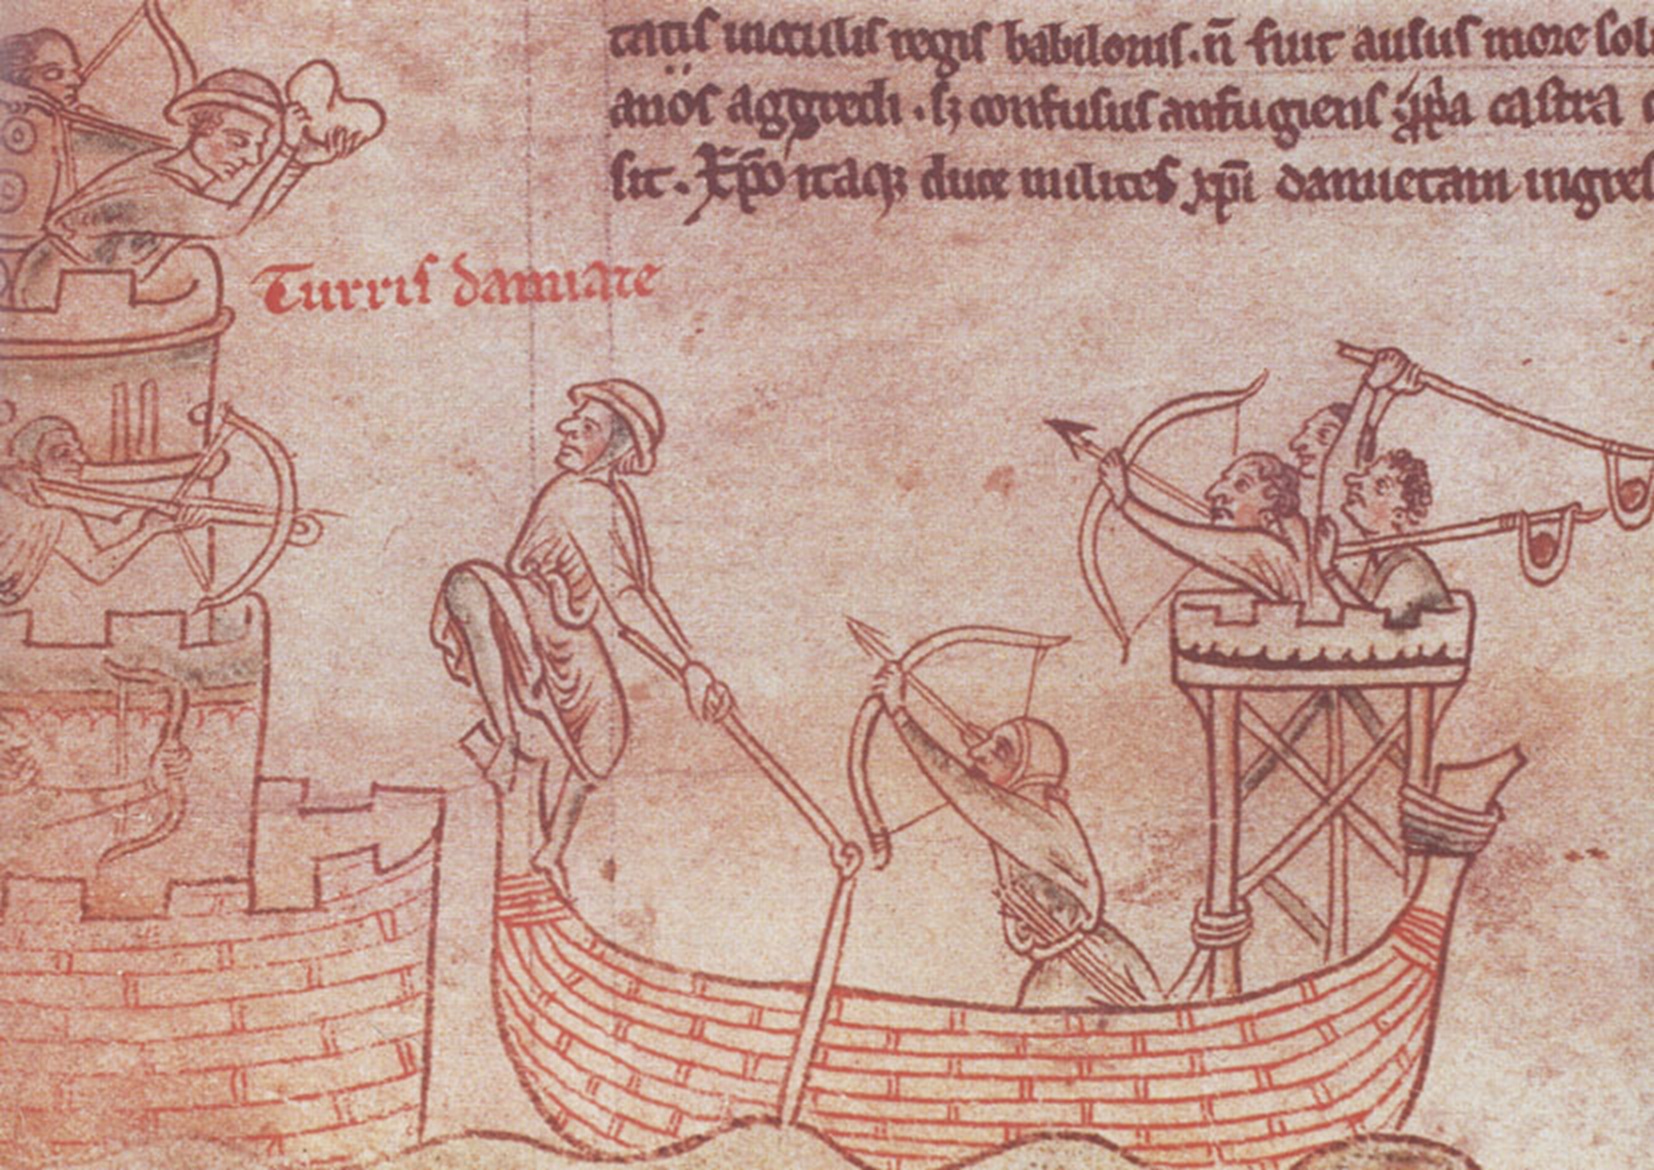 tatis in oculis regis babilonis. ñ fuit ausus more soli
anos aggredi. sȝ confusus aufugiens ꝓpͥa castra
sit. Xp̄o itaqȝ duce milites xp̄i damietam ingres
Turris damiate